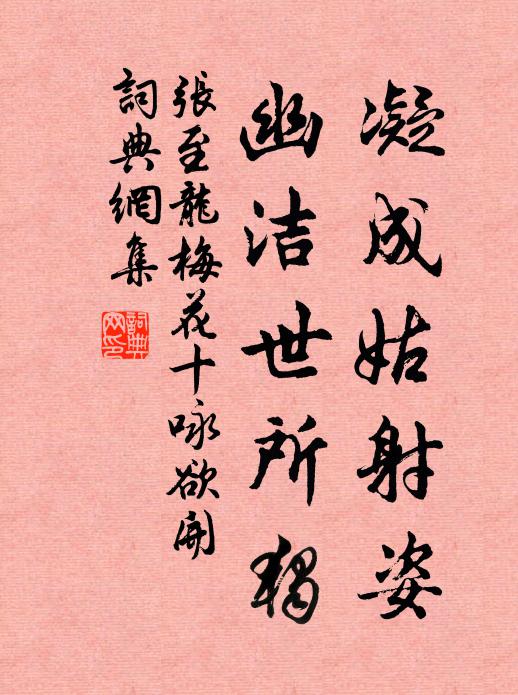 凝成姑射姿
幽洁世所独
張至龍梅花十咏欲開
詞典網集
詞典網印